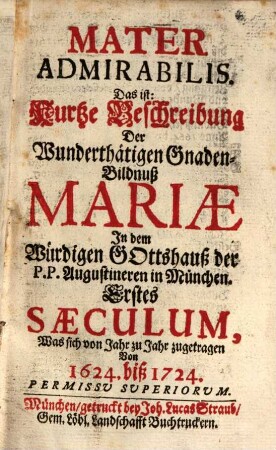 MATER
ADMIRABILIS.
Das ist:
Kurtze Beschreibung
Der
Wunderthätigen Gnaden-
Bildnuß
MARIÆ
In dem
Würdigen GOttshauß der
P.P. Augustineren in München.
Erstes
SÆCULUM,
Was sich von Jahr zu Jahr zugetragen
Von
1624. biß 1724.
PERMISSU SUPERIORUM.
München/getruckt bey Joh. Lucas Straub/
Gem. Löbl. Landschafft Buchtruckern.